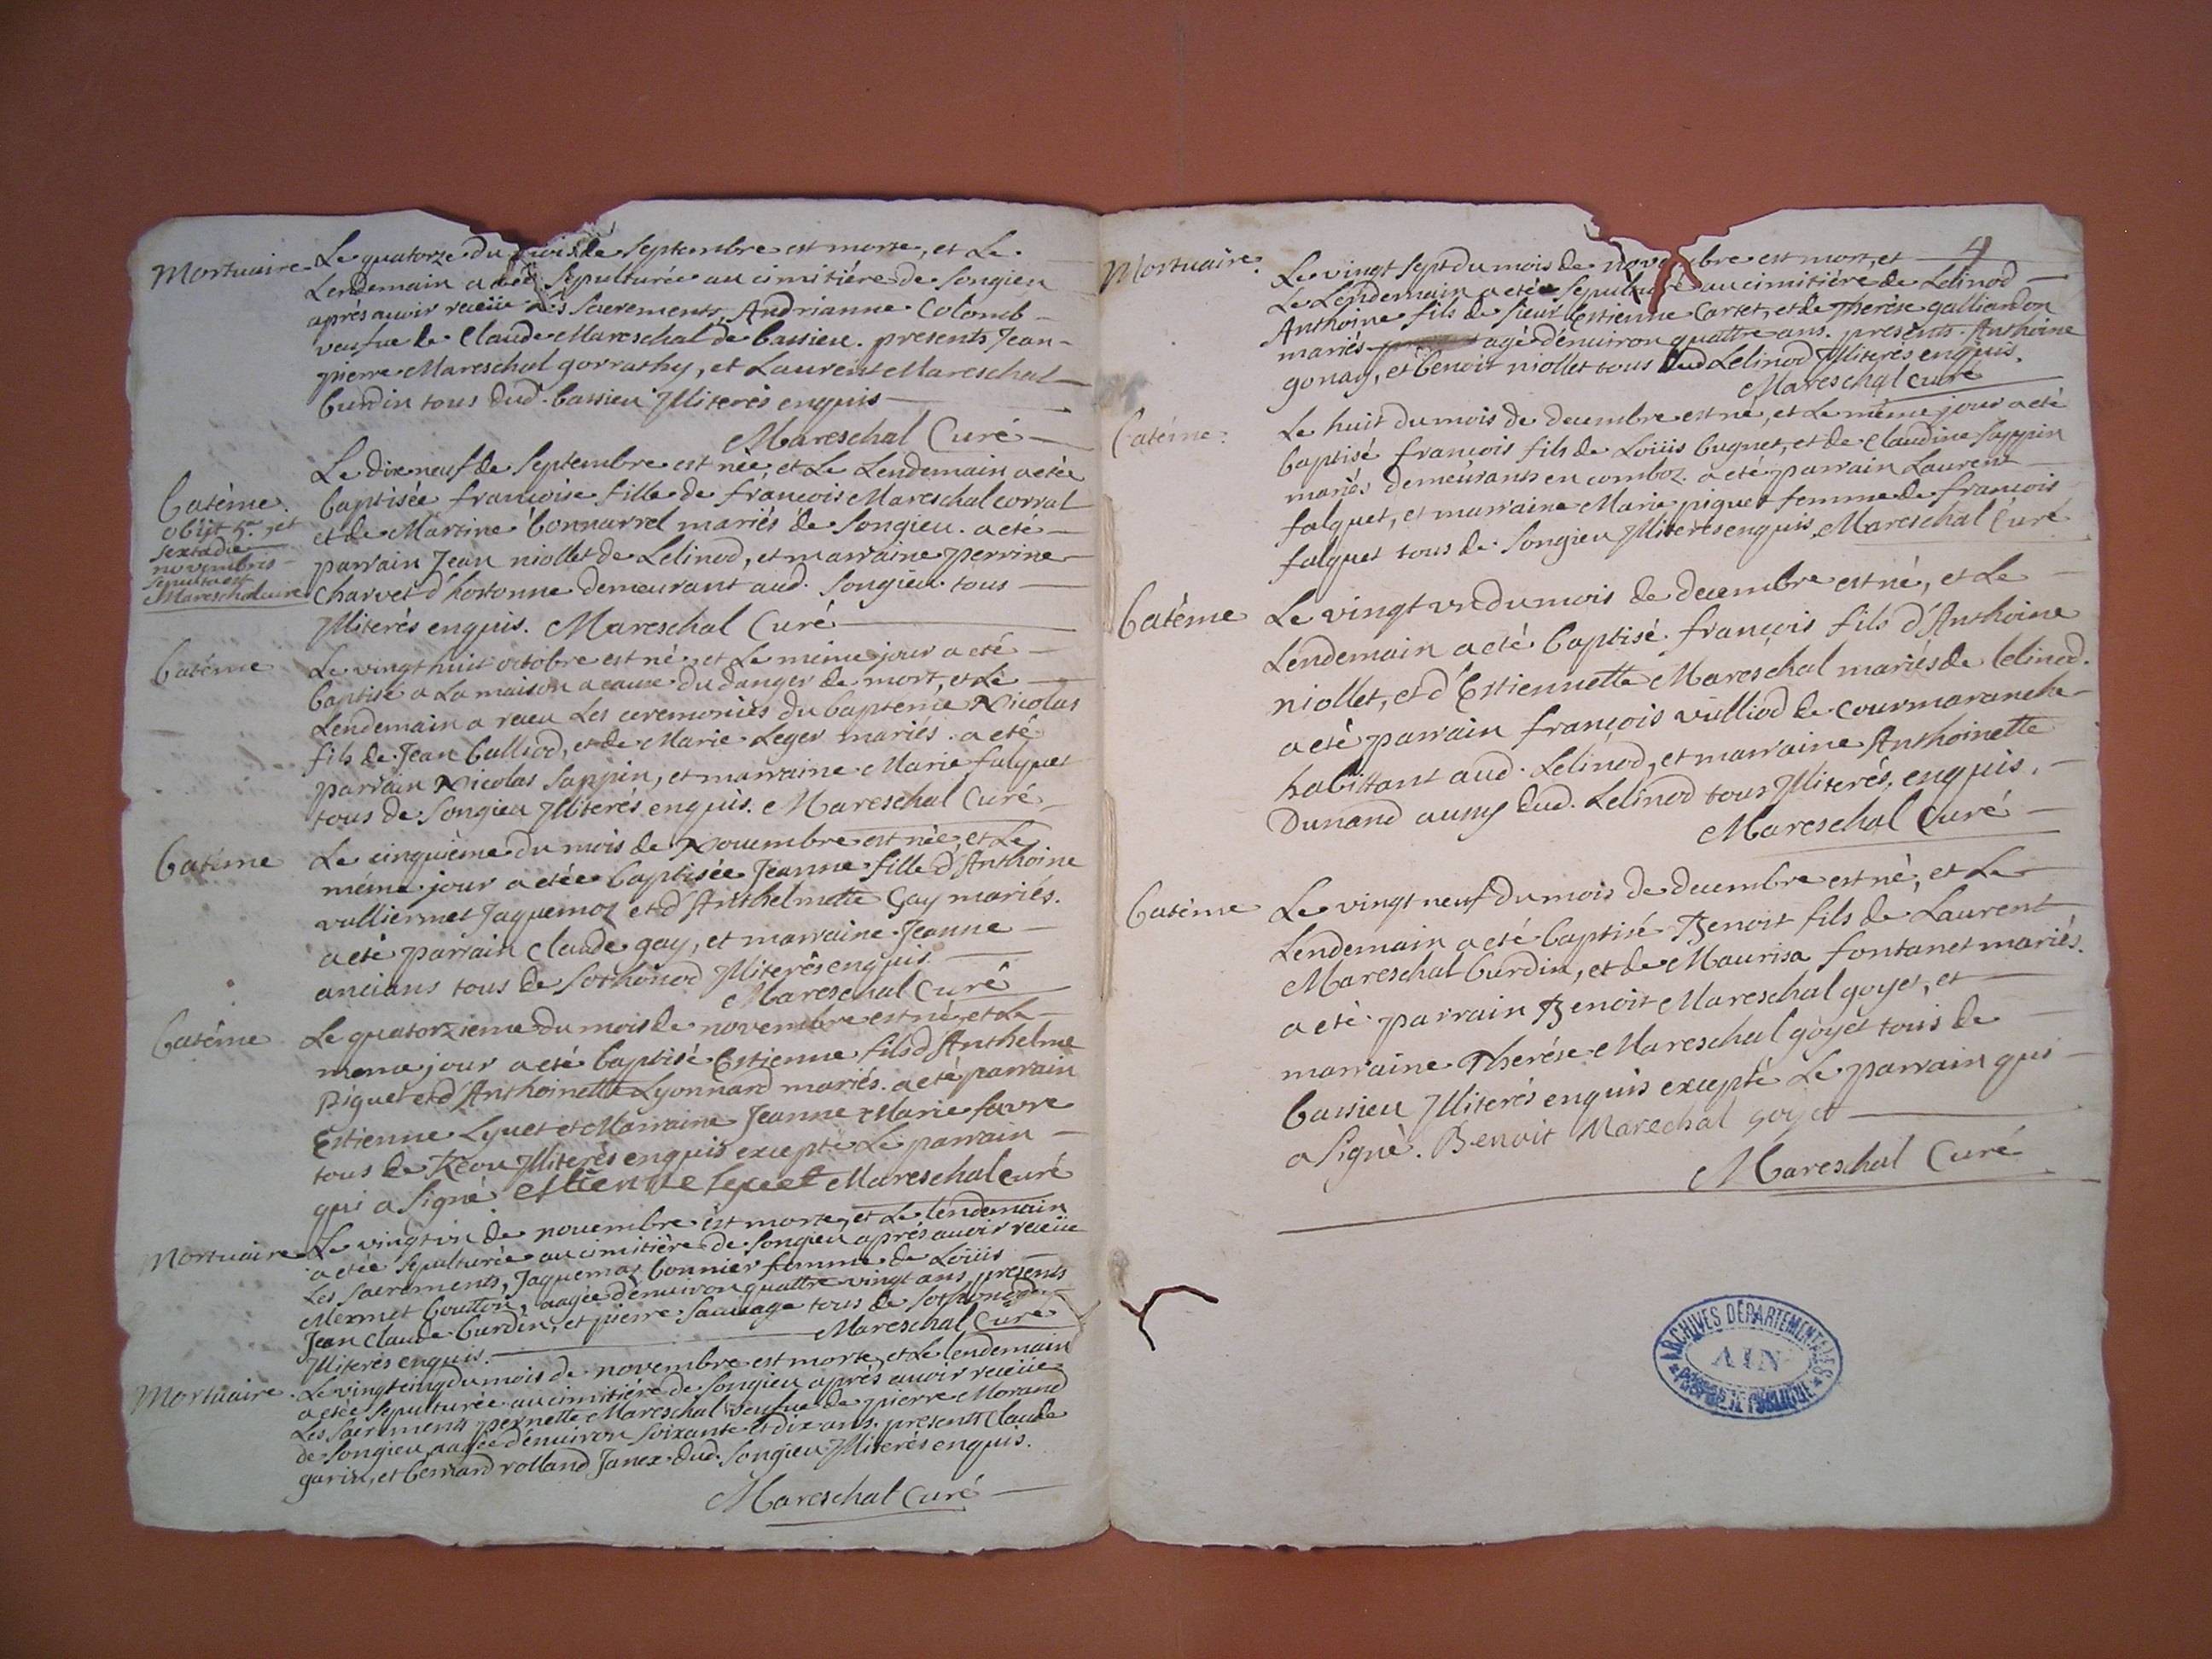 Mortuaire Le quatorze du mois de septembre est morte, et Le
Lendemain a etée sepulturée au cimitière de songieu
après auoir receüe Les sacrements, Andrianne Colomb
veufue de Claude Mareschal de bassieu. presents Jean
pierre Mareschal gorrathy, et Laurent Mareschal
burdin tous dud. bassieu Jlliterés enquis
Mareschal Curé
Le dixneuf de septembre est née, et Le Lendemain a etée
Batéme. baptisée françoise fille de françois Mareschal corrat
obijt 5a. et
sexta die
novembris
sepulta est
Mareschal curé
et de Martine bonnarrel mariés de songieu. a eté
parrain Jean niollet de Lelinod, et marraine perrine
Charvet d'hotonne demeurant aud. songieu tous
Jlliterés enquis. Mareschal Curé
Batéme Le vingt huit octobre est né, et Le même jour a eté
baptisé a La maison a cause du danger de mort, et Le
Lendemain a receu Les ceremonies du baptême Nicolas
fils de Jean balliod, et de Marie Leger mariés. a eté
parrain Nicolas sappin, et marraine Marie falquet
tous de songieu Jlliterés enquis. Mareschal Curé
Batéme Le cinquième du mois de Nouembre est née, et Le
méme jour a etée baptisée Jeanne fille d'Anthoine
vulliermet Jaquemoz et d'Anthelmette Gay mariés.
a eté parrain Claude gay, et marraine Jeanne
ancians tous de sothonod Jlliterés enquis.
Mareschal Curé
Batéme Le quatorzieme du mois de novembre est né, et Le
meme jour a eté baptisé Estienne fils d'Anthelme
Piquet et d'Anthoinette Lyonnard mariés. a eté parrain
Estienne Lyuet et Marraine Jeanne Marie favre
tous de Reou Jlliterés enquis excepté Le parrain
qui a signé. estienne lyuet Mareschal curé
Mortuaire Le vingt un de nouembre est morte, et Le lendemain
a etée sepulturée au cimitière de songieu après auoir receüe
Les sacrements, Jaquemaz bonnier femme de Loüis
Mermet bouton, aagée d'enuiron quattre vingt ans, presents
Jean Claude burdin, et pierre sauuage tous de sothonod
Jlliterés enquis. Mareschal Curé
Mortuaire. Le vingt cinq du mois de novembre est morte, et Le lendemain
a etée sepulturée au cimitière de songieu après auoir receüe
Les sacrements pernette Mareschal veufue de pierre Morand
de songieu, aagée d'enuiron soixante et dix ans. presents Claude
garin, et bernard rolland Janex dud. songieu Jlliterés enquis.
Mareschal Curé
4
Mortuaire. Le vingt sept du mois de novembre est mort, et
Le Lendemain a eté sepulturé au cimitière de Lelinod
Anthoine fils de sieur Estienne Cartet, et de Therèse galliandon
mariés agé d'enuiron quattre ans. presents Anthoine
gonay, et benoit niollet tous dud Lelinod Jlliterés enquis.
Mareschal curé
Batéme. Le huit du mois de decembre est né, et Le même jour a eté
baptisé françois fils de Loüis bugnet, et de Claudine sappin
mariés demeurants en comboz. a eté parrain Laurent
falquet, et marraine Marie piquet femme de françois
falquet tous de songieu Jlliterés enquis. Mareschal Curé
Batéme Le vingt un du mois de decembre est né, et Le
Lendemain a eté baptisé françois fils d'Anthoine
niollet, et d'Estiennette Mareschal mariés de lelinod.
a eté parrain françois vulliod de Courmaranche
habittant aud. Lelinod, et marraine Anthoinette
Dunand aussy dud. Lelinod tous Jlliterés enquis.
Mareschal Curé
Batéme Le vingt neuf du mois de decembre est né, et Le
Lendemain a eté baptisé Benoit fils de Laurent
Mareschal burdin, et de Maurisa fontanet mariés.
a eté parrain Benoit Mareschal goyet, et
marraine Therése Mareschal goyet tous de
bassieu Jlliterés enquis excepté Le parrain qui
a signé. Benoit Marechal goyet
Mareschal Curé
ARCHIVES DÉPARTEMENTALES
AIN